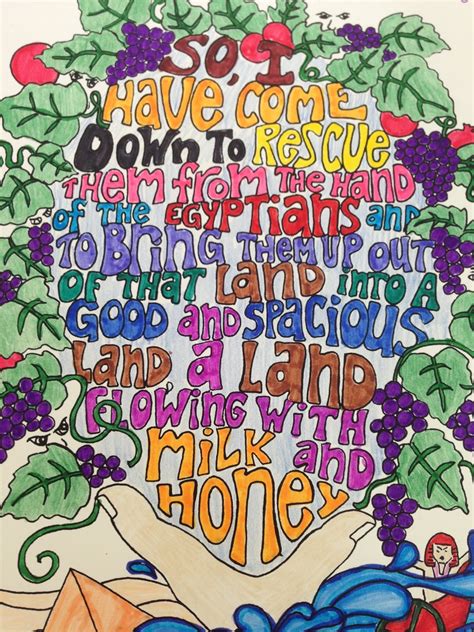 So, I
Have come
Down to Rescue
Them from the Hand
of the Egyptians and
to Bring Them up out
of that Land into a
Good and Spacious
Land a Land
Flowing with
Milk and
Honey